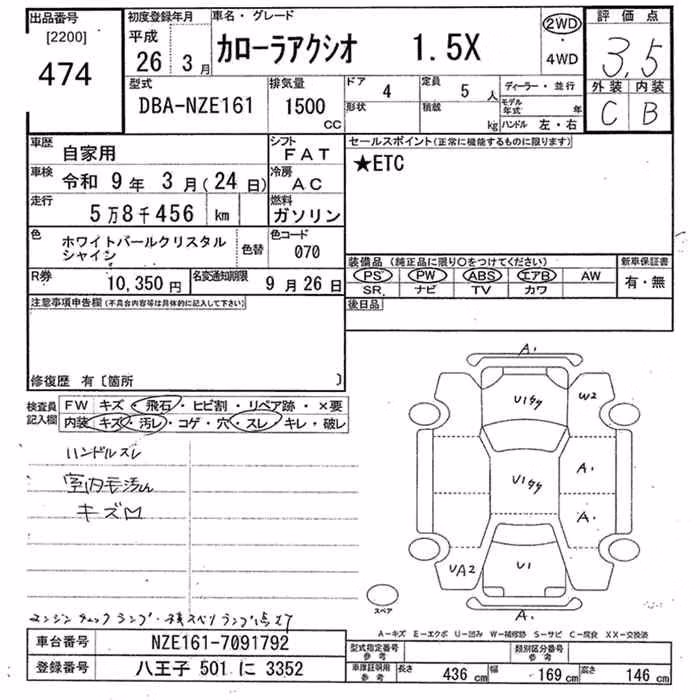 出品番号 初度登録年月 車名・グレード 評価点
[2200] 平成 2WD
474 26 3月 カローラアクシオ 1.5X ・ 3.5
4WD
型式 排気量 ドア 4 定員 5 人 ディーラー・並行 外装 内装
DBA-NZE161 1500 cc 形状 積載 kg モデル年式 年 C B
ハンドル 左・右
車歴 自家用 シフト FAT セールスポイント(正常に機能するものに限ります)
車検 令和 9年 3月(24日) 冷房 AC ★ETC
走行 5万8千456 km 燃料 ガソリン
色 ホワイトパールクリスタル 色替 色コード
シャイン 070
装備品 (純正品に限り○をつけてください) 新車保証書
R券 10,350円 名変通知期限 9月26日 PS PW ABS エアB AW 有・無
SR ナビ TV カワ
注意事項申告欄(不具合内容等は具体的に記入して下さい) 後日品
修復歴 有〔箇所 〕
検査員 FW キズ・飛石・ヒビ割・リペア跡・×要
記入欄 内装 キズ・汚レ・コゲ・穴・スレ・キレ・破レ
ハンドルスレ
キズ
A1
W2
A1
A1
U1
UA2
A1
スペア
エンジンチェックランプ・横スベリランプ点灯
A-キズ E-エクボ U-凹み W-補修跡 S-サビ C-腐食 XX-交換済
車台番号 NZE161-7091792 型式指定番号 参考 類別区分番号 参考
登録番号 八王子 501 に 3352 車庫証明用 参考 長さ 436 cm 幅 169 cm 高さ 146 cm